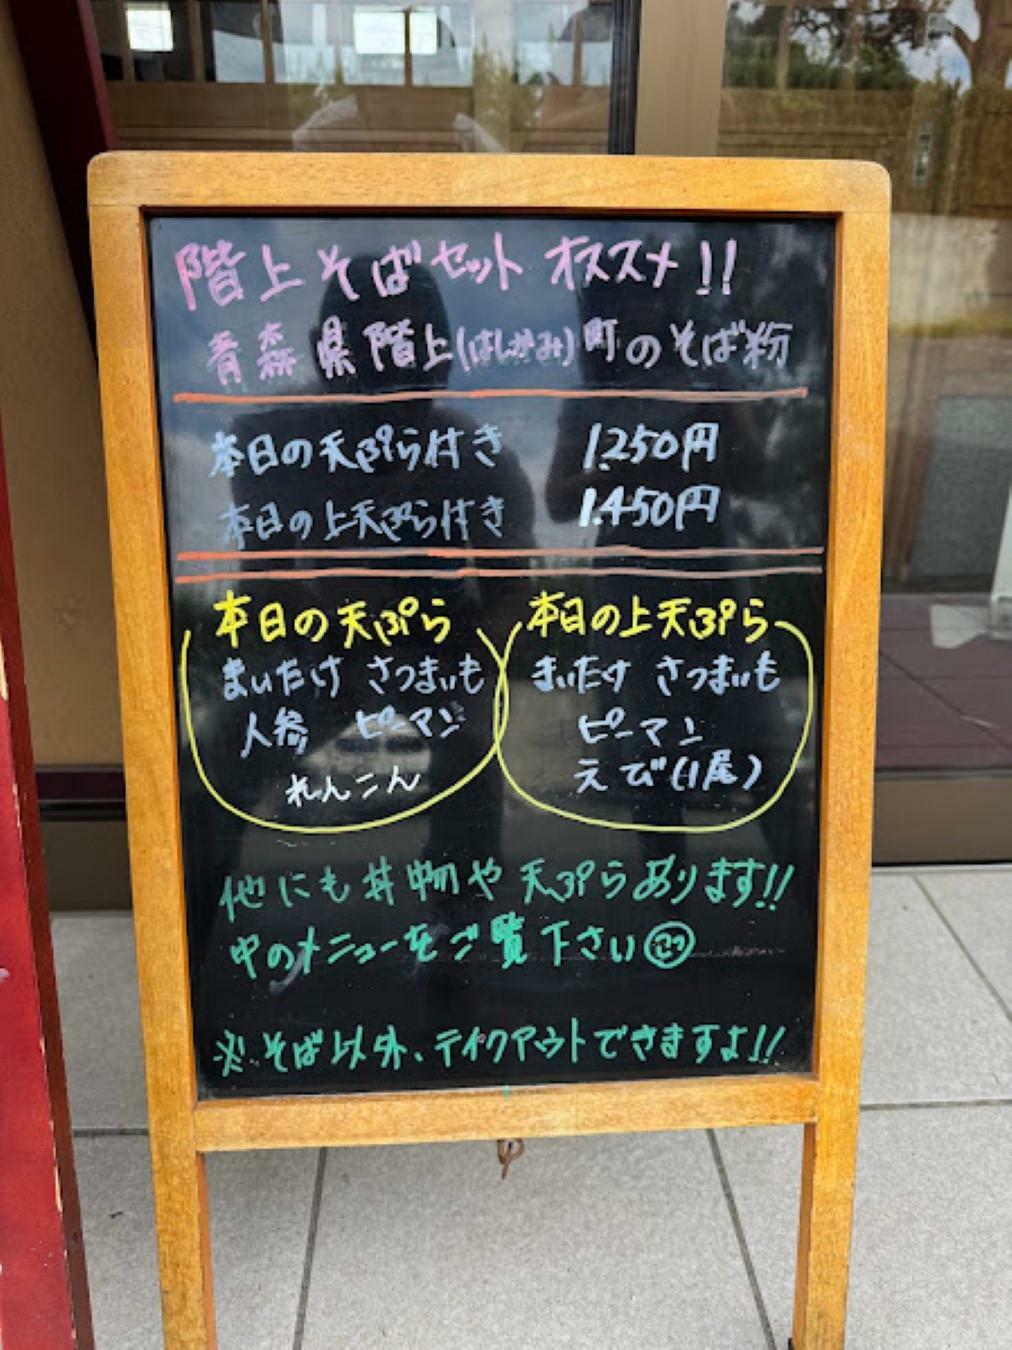 階上そばセット オススメ!!
青森県階上(はしかみ)町のそば粉
本日の天ぷら付き 1.250円
本日の上天ぷら付き 1.450円
本日の天ぷら
まいたけ さつまいも
人参 ピーマン
れんこん
本日の上天ぷら
まいたけ さつまいも
ピーマン
えび(1尾)
他にも丼物や天ぷらあります!!
中のメニューをご覧下さい
※そば以外、テイクアウトできますよ!!